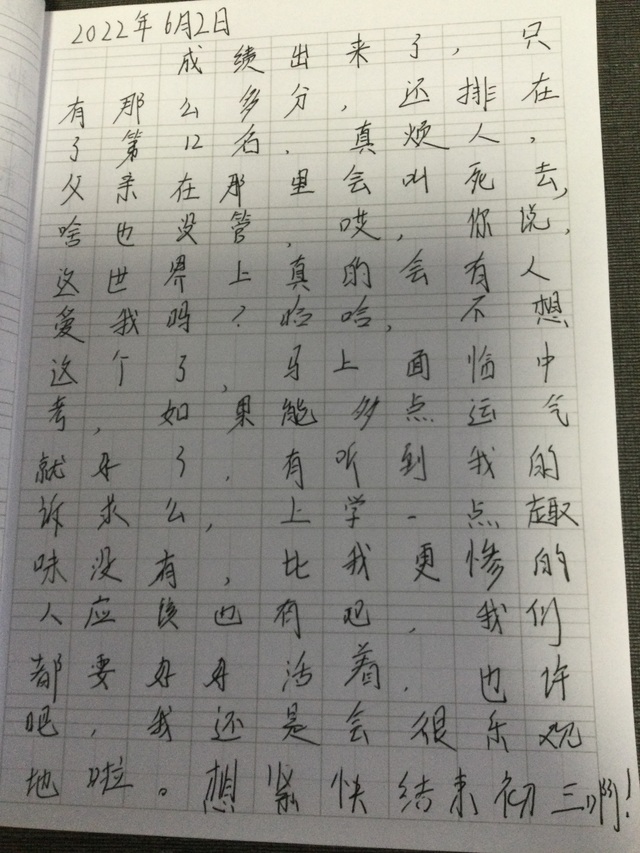 2022年6月2日
成绩出来了，只
有那么多分，还排在
了第12名，真烦人，
父亲在那里会叫死去，
啥也没管，哎，你说，
这世界上真的会有人
爱我吗？哈哈，不想
这个了，马上面临中
考，如果能多点运气
就好了，有听到我的
诉求么，上学一点趣
味没有，比我更惨的
人应该也有吧，我们
都要好好活着，也许
吧，我还是会很乐观
地啦。想紧快结束初三啊！